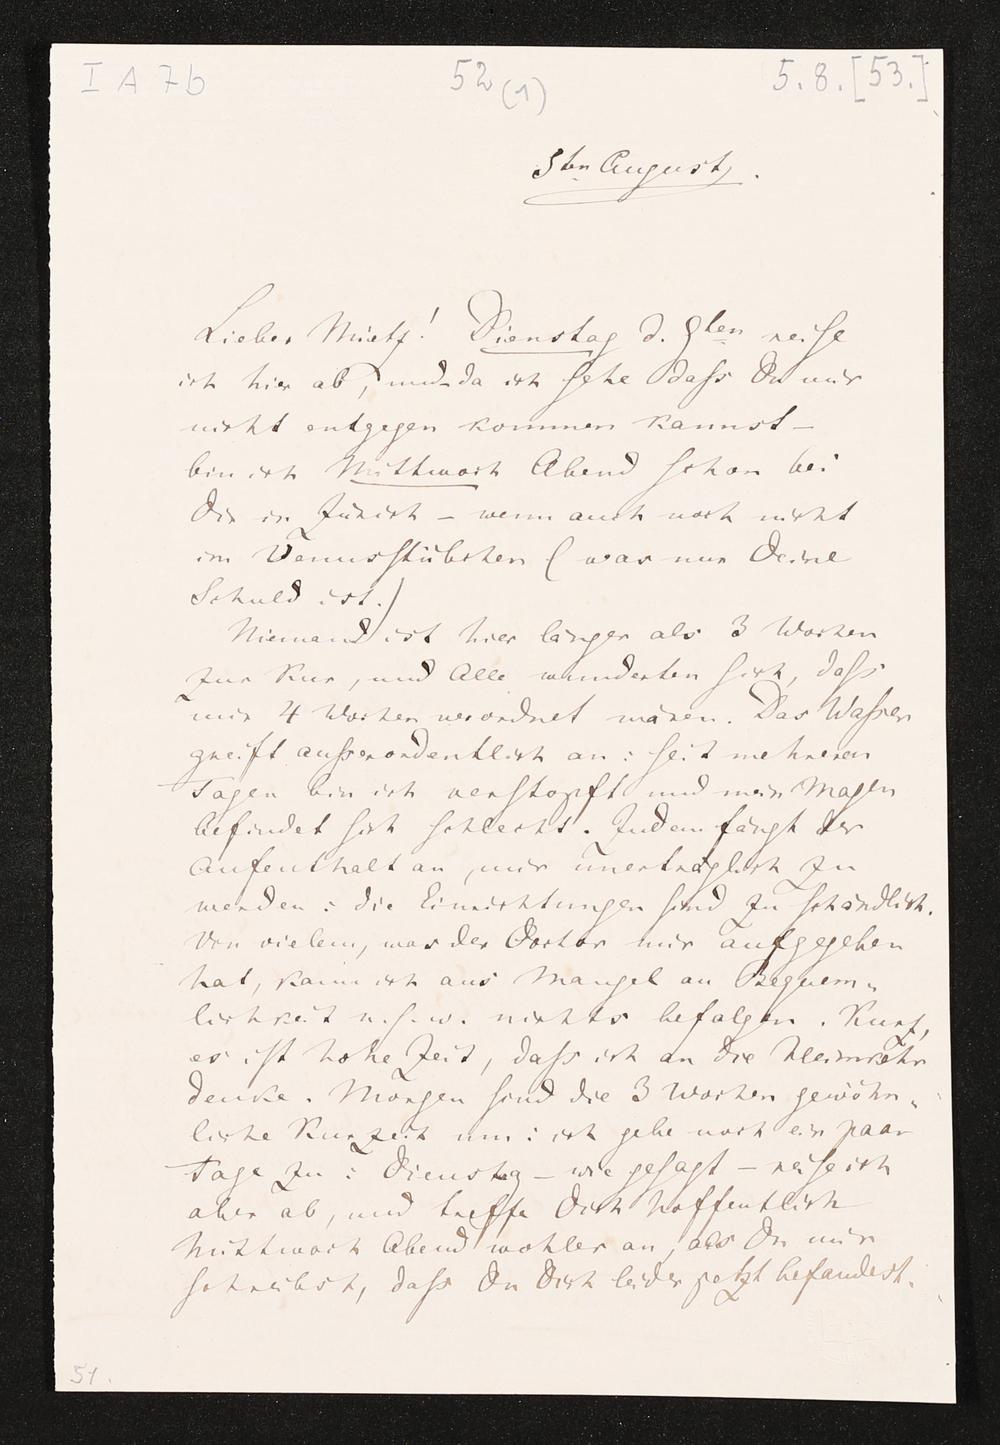 I A 7b
52 (1)
5.8.[53.]
5ten August.
Lieber Mietz! Dienstag d. 9ten reise
ich hier ab, und da ich sehe dass Du mir
nicht entgegen kommen kannst –
bin ich Mittwoch Abend schon bei
Dir in Zürich – wenn auch noch nicht
im Venusstübchen (was nur Deine
Schuld ist.)
Niemand ist hier länger als 3 Wochen
zur Kur, und Alle wunderten sich, dass
mir 4 Wochen verordnet wären. Das Wasser
greift ausserordentlich an: seit mehreren
Tagen bin ich verstopft und mein Magen
befindet sich schlecht. Zudem fängt der
Aufenthalt an, mir unerträglich zu
werden: die Einrichtungen sind zu schändlich.
Von vielem, was der Doctor mir aufgegeben
hat, kann ich aus Mangel an Bequem-
lichkeit u.s.w. nichts befolgen. Kurz,
es ist hohe Zeit, dass ich an die Heimkehr
denke. Morgen sind die 3 Wochen gewöhn-
liche Kurzeit um: ich gebe noch ein paar
Tage zu: Dienstag – wie gesagt – reise ich
aber ab, und treffe Dich hoffentlich
Mittwoch Abend wohler an, als Du mir
schreibst, dass Du Dich leider jetzt befandest.
51.